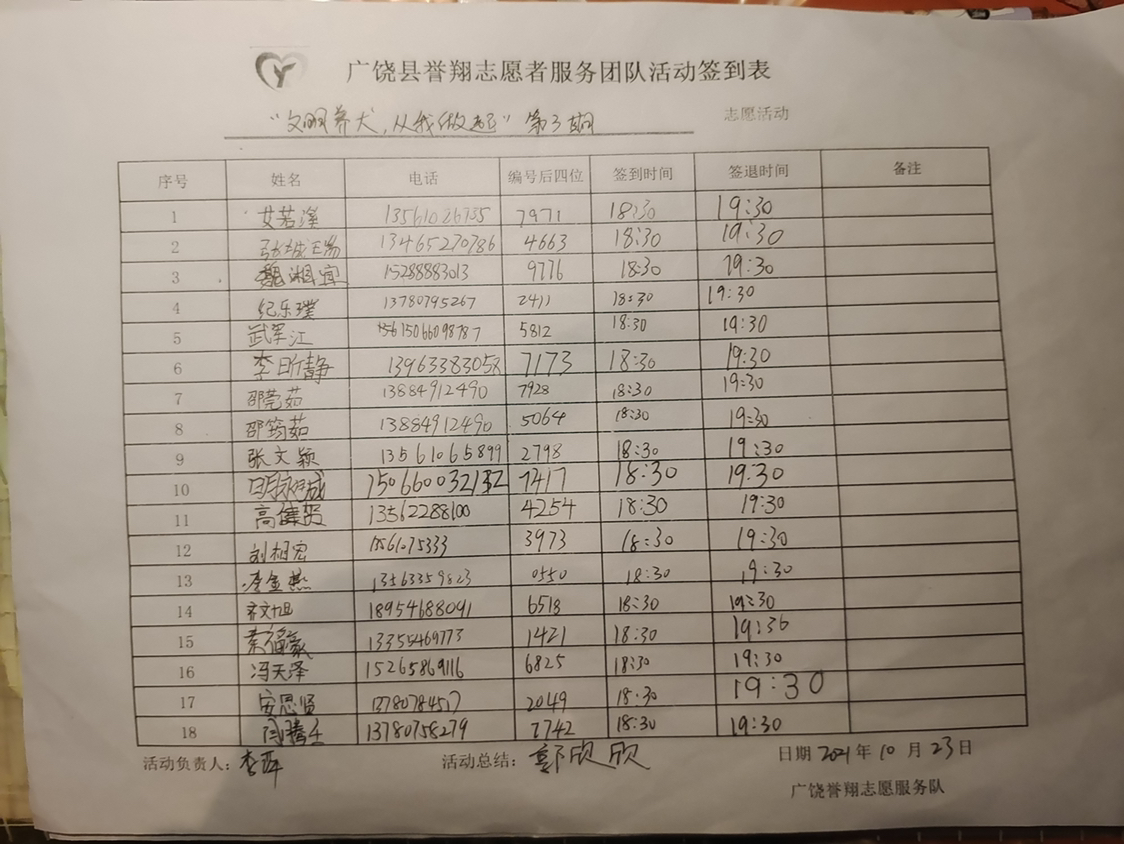 广饶县誉翔志愿者服务团队活动签到表
"文明养犬,从我做起"第3期 志愿活动
序号 姓名 电话 编号后四位 签到时间 签退时间 备注
1 艾若泽 13561026735 7971 18:30 19:30
2 13465270786 4663 18:30 19:30
3 魏湘宜 15288883013 9776 18:30 19:30
4 纪乐璞 13780795267 2411 18:30 19:30
5 武军江 5812 18:30 19:30
6 李昕静 13963383058 7173 18:30 19:30
7 邵莞茹 13884912490 7928 18:30 19:30
8 邵筠茹 13884912490 5064 18:30 19:30
9 张文颖 13561065899 2798 18:30 19:30
10 7417 18:30 19:30
11 高健贺 13562288100 4254 18:30 19:30
12 刘相宏 3973 18:30 19:30
13 李金燕 13563359823 0550 18:30 19:30
14 齐文旭 18954688091 6518 18:30 19:30
15 13355469773 1421 18:30 19:30
16 冯天泽 15265869116 6825 18:30 19:30
17 安思贤 2049 18:30 19:30
18 13780758279 7742 18:30 19:30
活动负责人: 李 活动总结: 郭欣欣 日期 2021年 10 月 23日
广饶誉翔志愿服务队